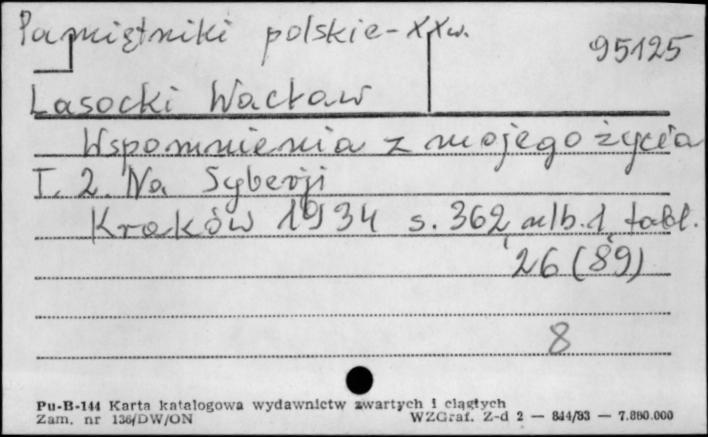 Pamiętniki polskie - XX w.
95125
Lasocki Wacław
Wspomnienia z mojego życia
T. 2. Na Syberji
Kraków 1934 s. 362, nlb. 1, tabl.
26 (89)
8
Pu-B-144 Karta katalogowa wydawnictw zwartych i ciągłych
Zam. nr 136/DW/ON WZGraf. Z-d 2 — 844/83 — 7.880.000